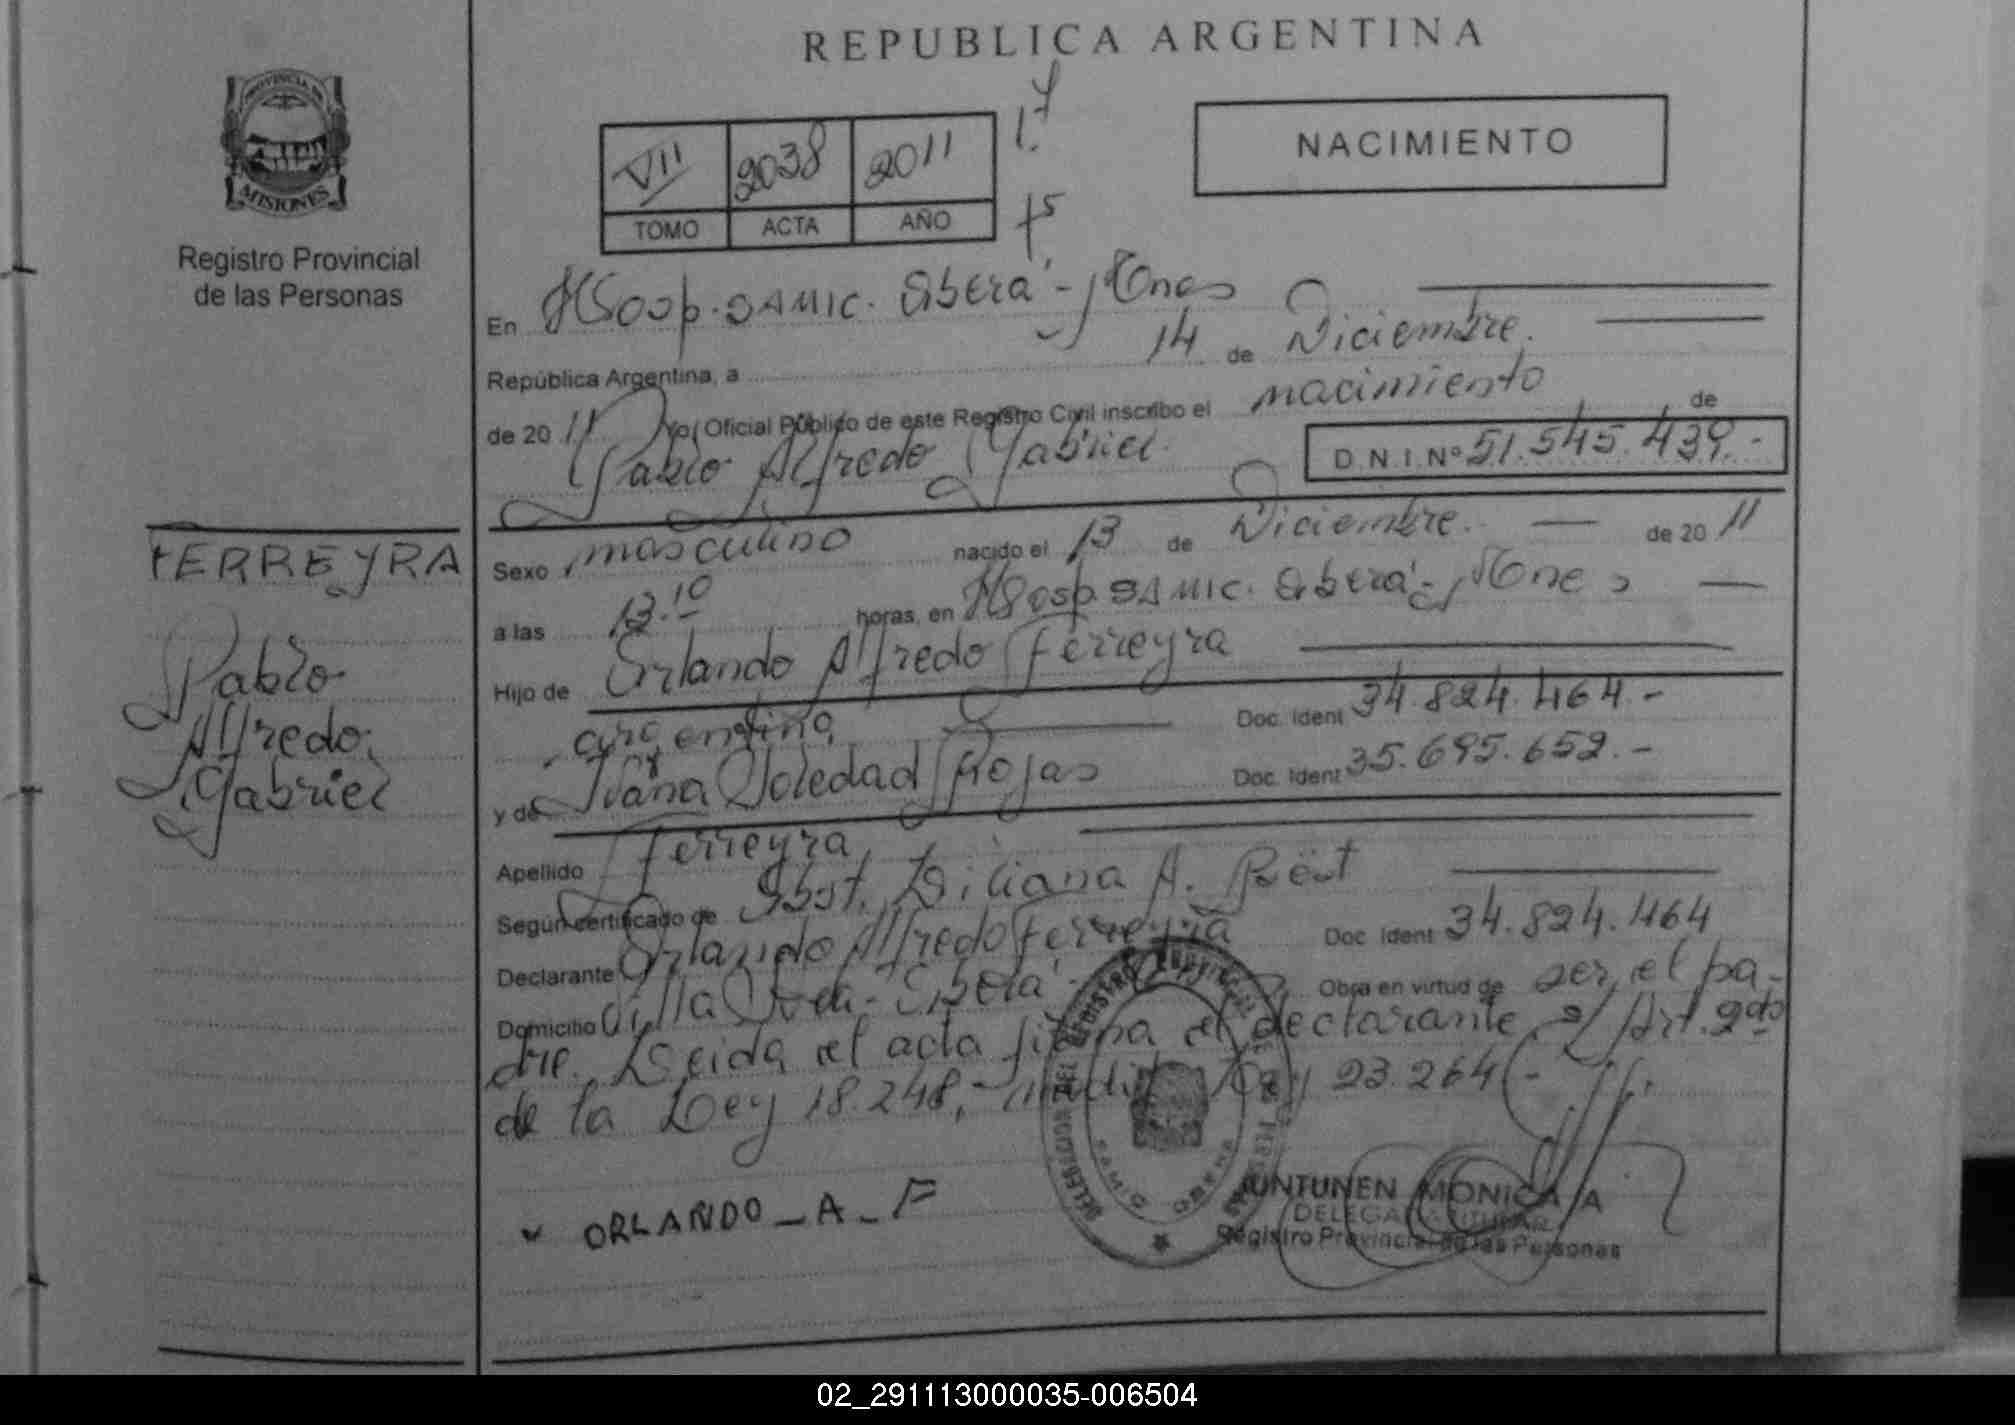 REPUBLICA ARGENTINA
PROVINCIA DE
MISIONES
Registro Provincial
de las Personas
VII 2038 2011
TOMO ACTA AÑO
NACIMIENTO
En Hosp. SAMIC. Oberá - Mnes
República Argentina, a 14 de Diciembre.
de 2011 Yo, Oficial Público de este Registro Civil inscribo el nacimiento de
Pablo Alfredo Gabriel.
D.N.I.Nº 51.545.439.-
FERREYRA
Pablo
Alfredo
Gabriel
Sexo masculino nacido el 13 de Diciembre. de 2011
a las 13.10 horas, en Hosp. SAMIC. Oberá - Mnes
Hijo de Orlando Alfredo Ferreyra
argentino Doc. Ident 34.824.464.-
y de Ivana Soledad Rojas Doc. Ident 35.695.652.-
Apellido Ferreyra
Según certificado de Obst. Liliana A.
Declarante Orlando Alfredo Ferreyra Doc Ident 34.824.464
Domicilio Villa Oberá Obra en virtud de ser el pa-
dre. Leida el acta firma el declarante s/ Art. 2do
de la Ley 18.248,- Ley 23.264.-
ORLANDO_A_F
DELEGACION DEL REGISTRO PROVINCIAL DE LAS PERSONAS
SAMIC OBERA
MONICA A
DELEGADA TITULAR
Registro Provincial de las Personas
02_291113000035-006504